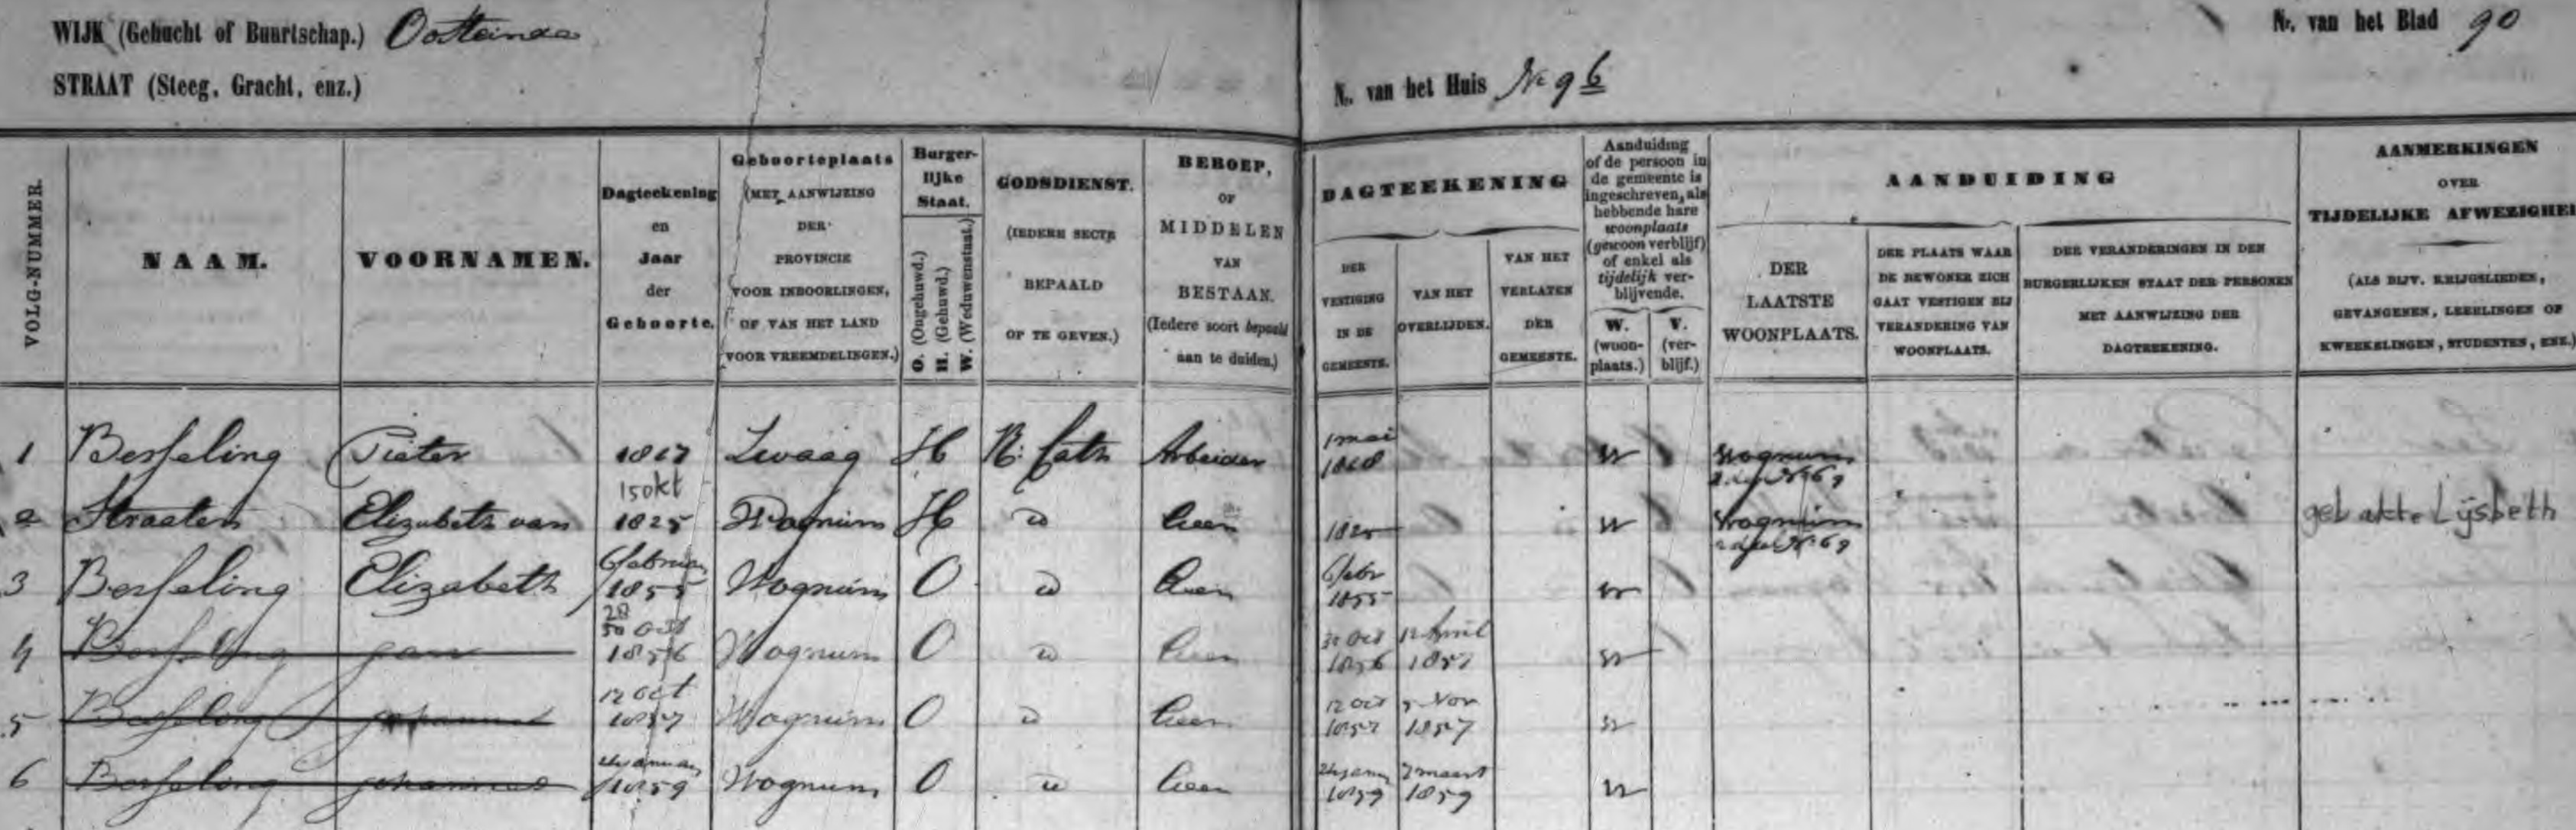 WIJK (Gehucht of Buurtschap.) Oosteinde
STRAAT (Steeg, Gracht, enz.)
N. van het Huis No 96
Nr. van het Blad 90
VOLG-NUMMER.
NAAM.
VOORNAMEN.
Dagteekening
en
Jaar
der
Geboorte.
Geboorteplaats
(MET AANWIJZING
DER
PROVINCIE
VOOR INBOORLINGEN,
OF VAN HET LAND
VOOR VREEMDELINGEN.)
Burger-
lijke
Staat.
O. (Ongehuwd.)
H. (Gehuwd.)
W. (Weduwenstaat.)
GODSDIENST.
(IEDERE SECTE
BEPAALD
OP TE GEVEN.)
BEROEP,
OF
MIDDELEN
VAN
BESTAAN.
(Iedere soort bepaald
aan te duiden.)
DAGTEEKENING
DER
VESTIGING
IN DE
GEMEENTE.
VAN HET
OVERLIJDEN.
VAN HET
VERLATEN
DER
GEMEENTE.
Aanduiding
of de persoon in
de gemeente is
ingeschreven, als
hebbende hare
woonplaats
(gewoon verblijf)
of enkel als
tijdelijk ver-
blijvende.
W.
(woon-
plaats.)
V.
(ver-
blijf.)
AANDUIDING
DER
LAATSTE
WOONPLAATS.
DER PLAATS WAAR
DE BEWONER ZICH
GAAT VESTIGEN BIJ
VERANDERING VAN
WOONPLAATS.
DER VERANDERINGEN IN DEN
BURGERLIJKEN STAAT DER PERSONEN
MET AANWIJZING DER
DAGTEEKENING.
AANMERKINGEN
OVER
TIJDELIJKE AFWEZIGHEI
(ALS BIJV. KRIJGSLIEDEN,
GEVANGENEN, LEERLINGEN OF
KWEEKELINGEN, STUDENTEN, ENZ.)
1 Besseling Pieter Zwaag H R. Cath Arbeider 1 mei W Wognum
15 okt
2 Straaten Elizabeth van 1825 Wognum H Geen 1825 W Wognum geb akte Lijsbeth
6 februari 6 febr
3 Besseling Elizabeth 1855 Wognum O Geen 1855 W
28
30 Oct 30 Oct 12 April
4 Besseling Jan 1856 Wognum O Geen 1856 1857 W
12 Oct 12 Oct Nov
5 Besseling Johannes 1857 Wognum O Geen 1857 1857 W
januari jann 7 maart
6 Besseling Johannes 1859 Wognum O Geen 1859 1859 W